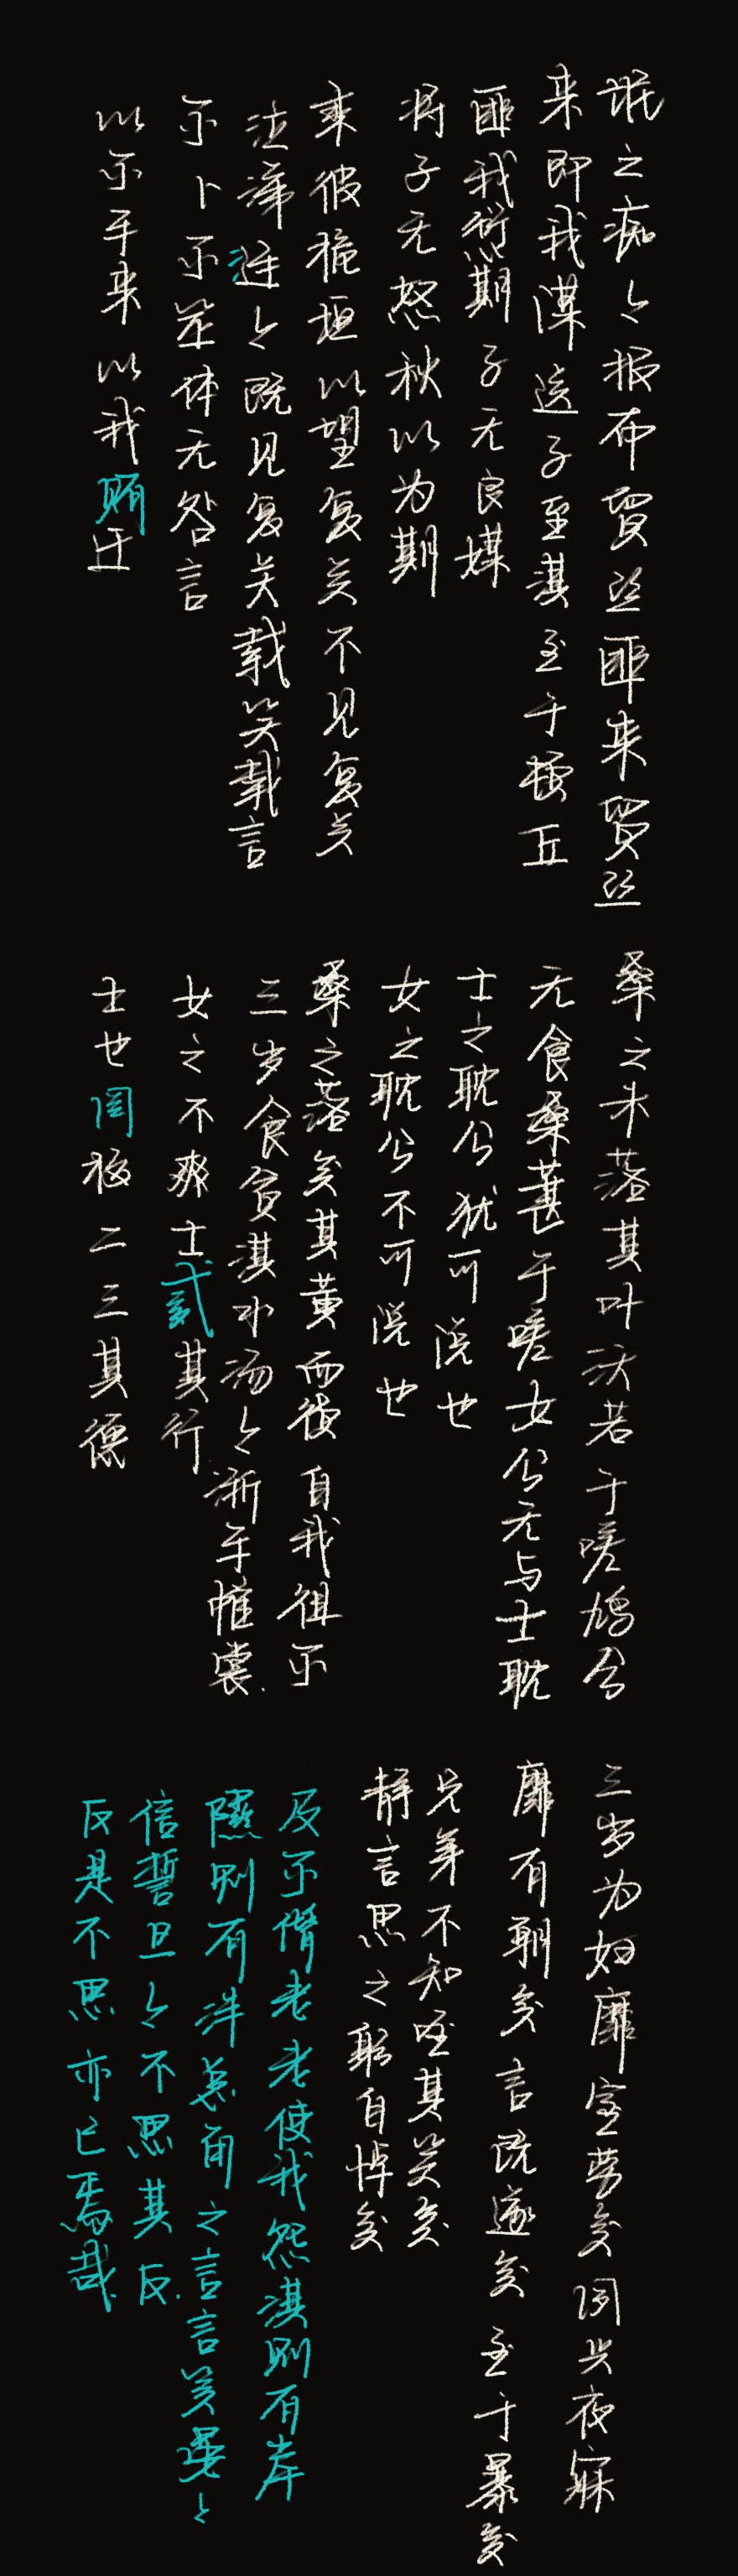 氓之痴々报布贸丝匪来贸丝
来即我谋送子至淇至于顿丘
匪我愆期子无良媒
将子无怒秋以为期
乘彼垝垣以望复关不见复关
泣涕涟々既见复关载笑载言
尔卜尔筮体无咎言
以尔车来以我贿迁
桑之未落其叶沃若于嗟鸠兮
无食桑葚于嗟女兮无与士耽
士之耽兮犹可说也
女之耽兮不可说也
桑之落矣其黄而陨自我徂尔
三岁食贫淇水汤々渐车帷裳
女之不爽士贰其行
士也罔极二三其德
三岁为妇靡室劳矣夙兴夜寐
靡有朝矣言既遂矣至于暴矣
兄弟不知咥其笑矣
静言思之躬自悼矣
及尔偕老老使我怨淇则有岸
隰则有泮总角之言言笑晏々
信誓旦々不思其反
反是不思亦已焉哉